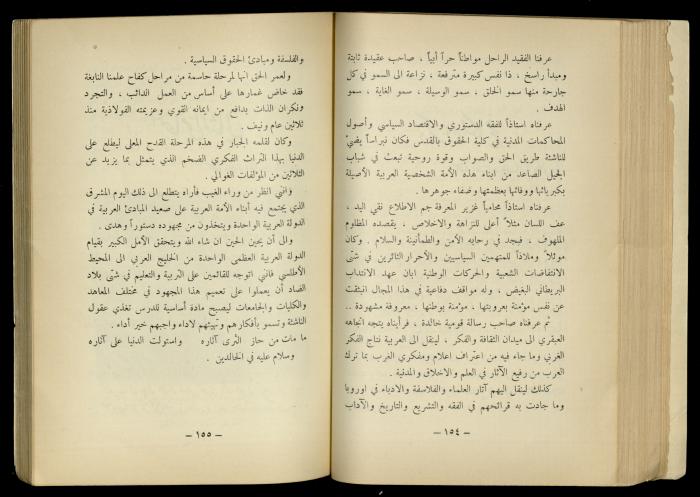 عرفنا الفقيد الراحل مواطناً حراً أبياً ، صاحب عقيدة ثابتة
ومبدأ راسخ ، ذا نفس كبيرة مترفعة ، نزاعة الى السمو في كل
جارحة منها سمو الخلق ، سمو الوسيلة ، سمو الغاية ، سمو
الهدف .
عرفناه استاذاً للفقه الدستوري والاقتصاد السياسي وأصول
المحاكمات المدنية في كلية الحقوق بالقدس فكان نبراساً يضيْ
للناشئة طريق الحق والصواب وقوة روحية تبعث في شباب
الجيل الصاعد من ابناء هذه الأمة الشخصية العربية الأصيلة
بكبريائها ووفائها بعظمتها وصفاء جوهرها .
عرفناه استاذاً محامياً غزير المعرفة جم الاطلاع نقي اليد ،
عف اللسان مثلاً أعلى للنزاهة والاخلاص ، يقصده المظلوم
الملهوف ، فيجد في رحابه الأمن والطمأنينة والسلام . وكان
موئلاً وملاذاً للمتهمين السياسيين والأحرار الثائرين في شتى
الانتفاضات الشعبية والحركات الوطنية ابان عهد الانتداب
البريطاني البغيض ، وله مواقف دفاعية في هذا المجال انبثقت
عن نفس مؤمنة بعروبتها ، مؤمنة بوطنها ، معروفة مشهودة ..
ثم عرفناه صاحب رسالة قومية خالدة ، فرأيناه يتجه اتجاهه
العبقري الى ميدان الثقافة والفكر ، لينقل الى العربية نتاج الفكر
الغربي وما جاء فيه من اعتراف اعلام ومفكري الغرب بما ترك
العرب من رفيع الآثار في العلم والاخلاق والمدنية .
كذلك لينقل اليهم آثار العلماء والفلاسفة والادباء في اوروبا
وما جادت به قرائحهم في الفقه والتشريع والتاريخ والآداب
– ١٥٤ –
والفلسفة ومبادئ الحقوق السياسية .
ولعمر الحق انها لمرحلة حاسمة من مراحل كفاح علمنا النابغة
فقد خاض غمارها على أساس من العمل الدائب ، والتجرد
ونكران الذات بدافع من ايمانه القوي وعزيمته الفولاذية منذ
ثلاثين عام ونيف .
وكان لقلمه الجبار في هذه المرحلة القدح المعلى ليطلع على
الدنيا بهذا التراث الفكري الضخم الذي يتمثل بما يزيد عن
الثلاثين من المؤلفات الغوالي .
وانني انظر من وراء الغيب فأراه يتطلع الى ذلك اليوم المشرق
الذي يجتمع فيه أبناء الأمة العربية على صعيد المبادئ العربية في
الدولة العربية الواحدة ويتخذون من مجهوده دستوراً وهدى .
والى أن يحين الحين ان شاء الله ويتحقق الأمل الكبير بقيام
الدولة العربية العظمى الواحدة من الخليج العربي الى المحيط
الأطلسي فانني اتوجه للقائمين على التربية والتعليم في شتى بلاد
الضاد أن يعملوا على تعميم هذا المجهود في مختلف المعاهد
والكليات والجامعات ليصبح مادة أساسية للدرس تغذي عقول
الناشئة وتسمو بأفكارهم وتهيئهم لاداء واجبهم خير أداء .
ما مات من حاز الثرى آثاره واستولت الدنيا على آثاره
وسلام عليه في الخالدين .
– ١٥٥ –